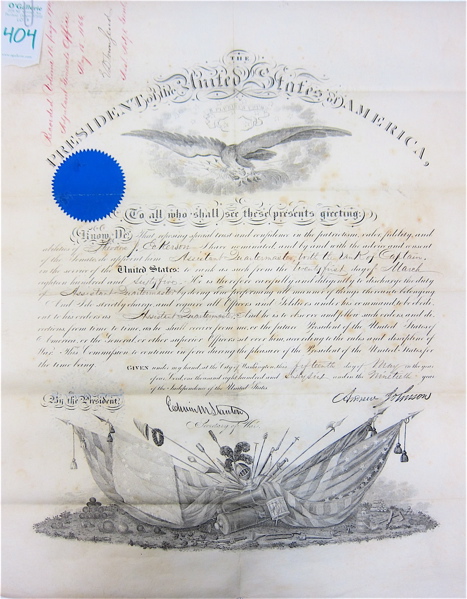 O'Gallerie
404
THE
PRESIDENT of the United States of AMERICA,
To all who shall see these presents greeting:
Know Ye, That reposing special trust and confidence in the patriotism, valor, fidelity, and
abilities of Patterson I have nominated, and by and with the advice and consent
of the Senate, do appoint him Assistant Quartermaster, with the rank of Captain,
in the service of the United States: to rank as such from the twenty first day of March
eighteen hundred and sixty five. He is therefore carefully and diligently to discharge the duty
of Assistant Quartermaster by doing and performing all manner of things thereunto belonging.
And I do strictly charge, and require all Officers and Soldiers under his command to be obedi-
ent to his orders as Assistant Quartermaster. And he is to observe and follow such orders, and di-
rections, from time to time, as he shall receive from me, or the future President of the United States of
America, or the General, or other superior Officers set over him, according to the rules and discipline of
War. This Commission to continue in force during the pleasure of the President of the United States, for
the time being.
GIVEN under my hand at the City of Washington, this day of May in the year
of our Lord one thousand eight hundred and Sixty six and in the Ninetieth year
of the Independence of the United States.
By the President
Andrew Johnson
Edwin M Stanton
Secretary of War.